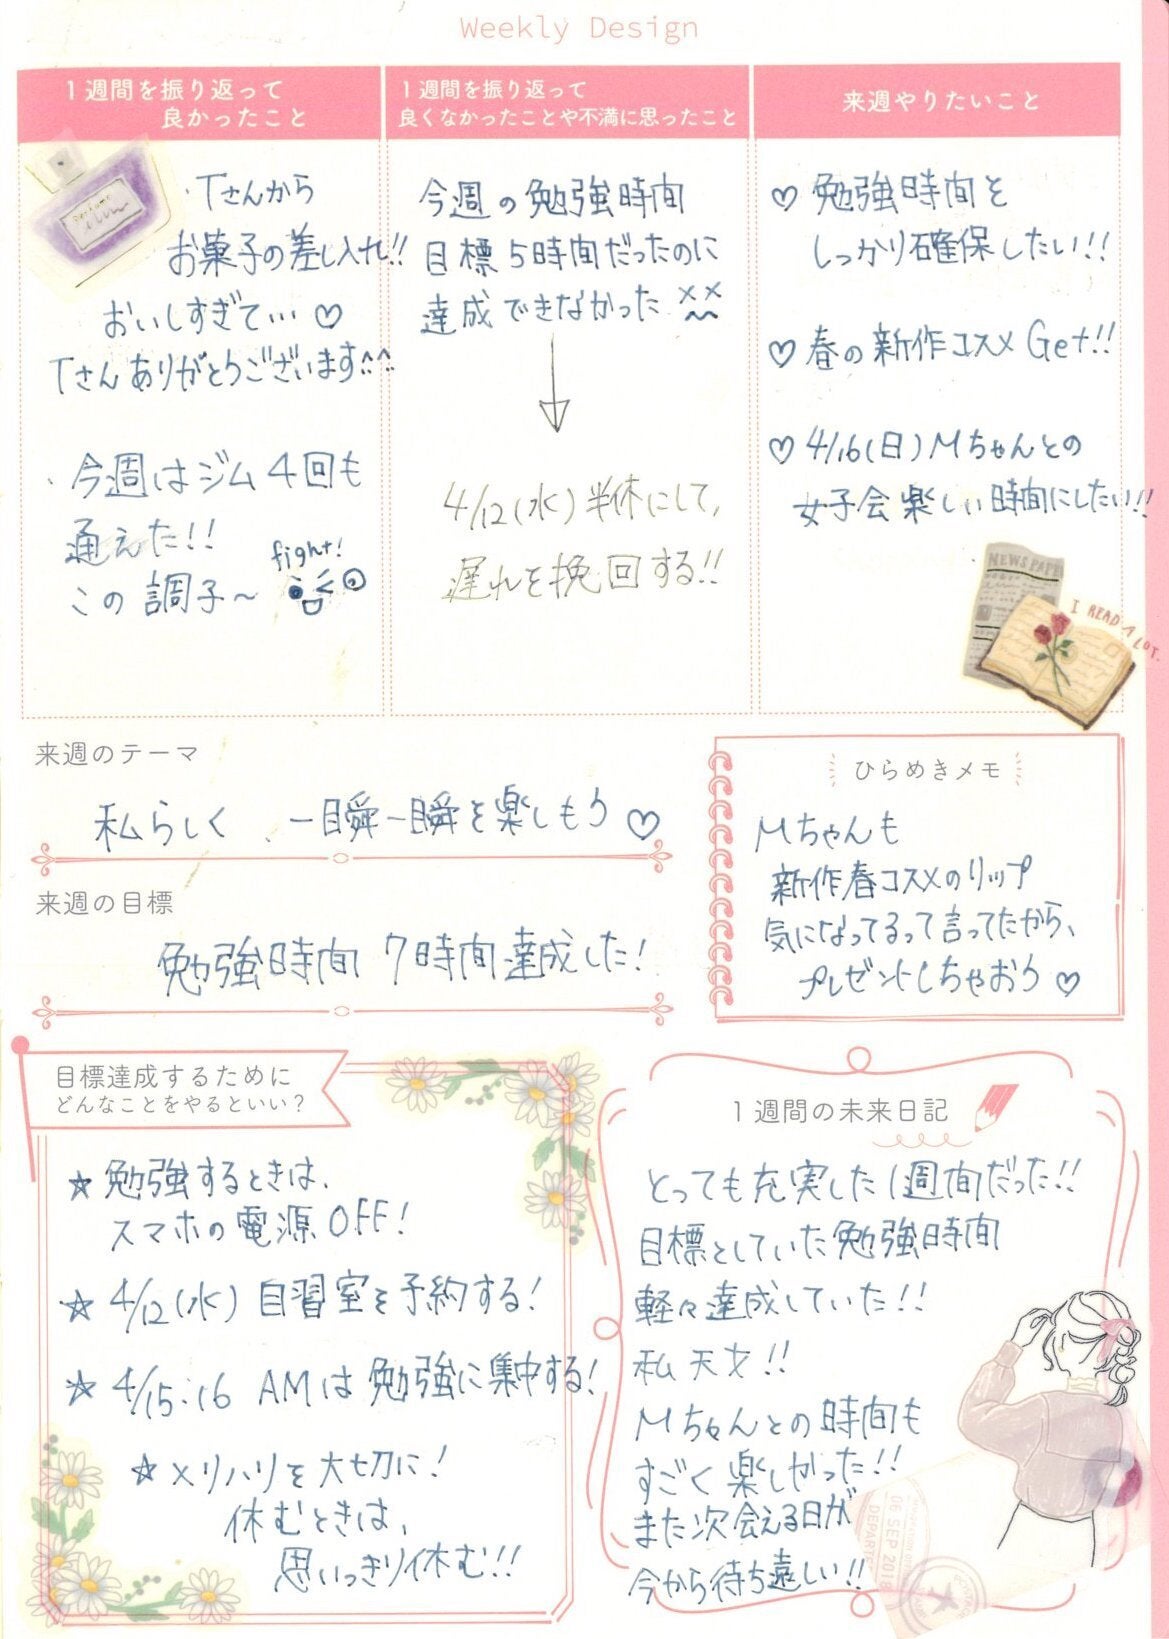 Weekly Design
1週間を振り返って
良かったこと
・Tさんから
お菓子の差し入れ!!
おいしすぎて…♡
Tさんありがとうございます^^
・今週はジム4回も
通えた!!
この調子〜
fight!
1週間を振り返って
良くなかったことや不満に思ったこと
今週の勉強時間
目標5時間だったのに
達成できなかった××
4/12(水)半休にして、
遅れを挽回する!!
来週やりたいこと
♡ 勉強時間を
しっかり確保したい!!
♡ 春の新作コスメGet!!
♡ 4/16(日)Mちゃんとの
女子会楽しい時間にしたい!!
NEWS PAPE
I READ A LOT.
来週のテーマ
私らしく、一瞬一瞬を楽しもう♡
来週の目標
勉強時間 7時間達成した!
ひらめきメモ
Mちゃんも
新作春コスメのリップ
気になってるって言ってたから、
プレゼントしちゃおう♡
目標達成するために
どんなことをやるといい?
☆ 勉強するときは、
スマホの電源OFF!
☆ 4/12(水)自習室を予約する!
☆ 4/15・16 AMは勉強に集中する!
☆ メリハリを大切に!
休むときは、
思いっきり休む!!
1週間の未来日記
とっても充実した1週間だった!!
目標としていた勉強時間
軽々達成していた!!
私天才!!
Mちゃんとの時間も
すごく楽しかった!!
また次会える日が
今から待ち遠しい!!
06 SEP 2018